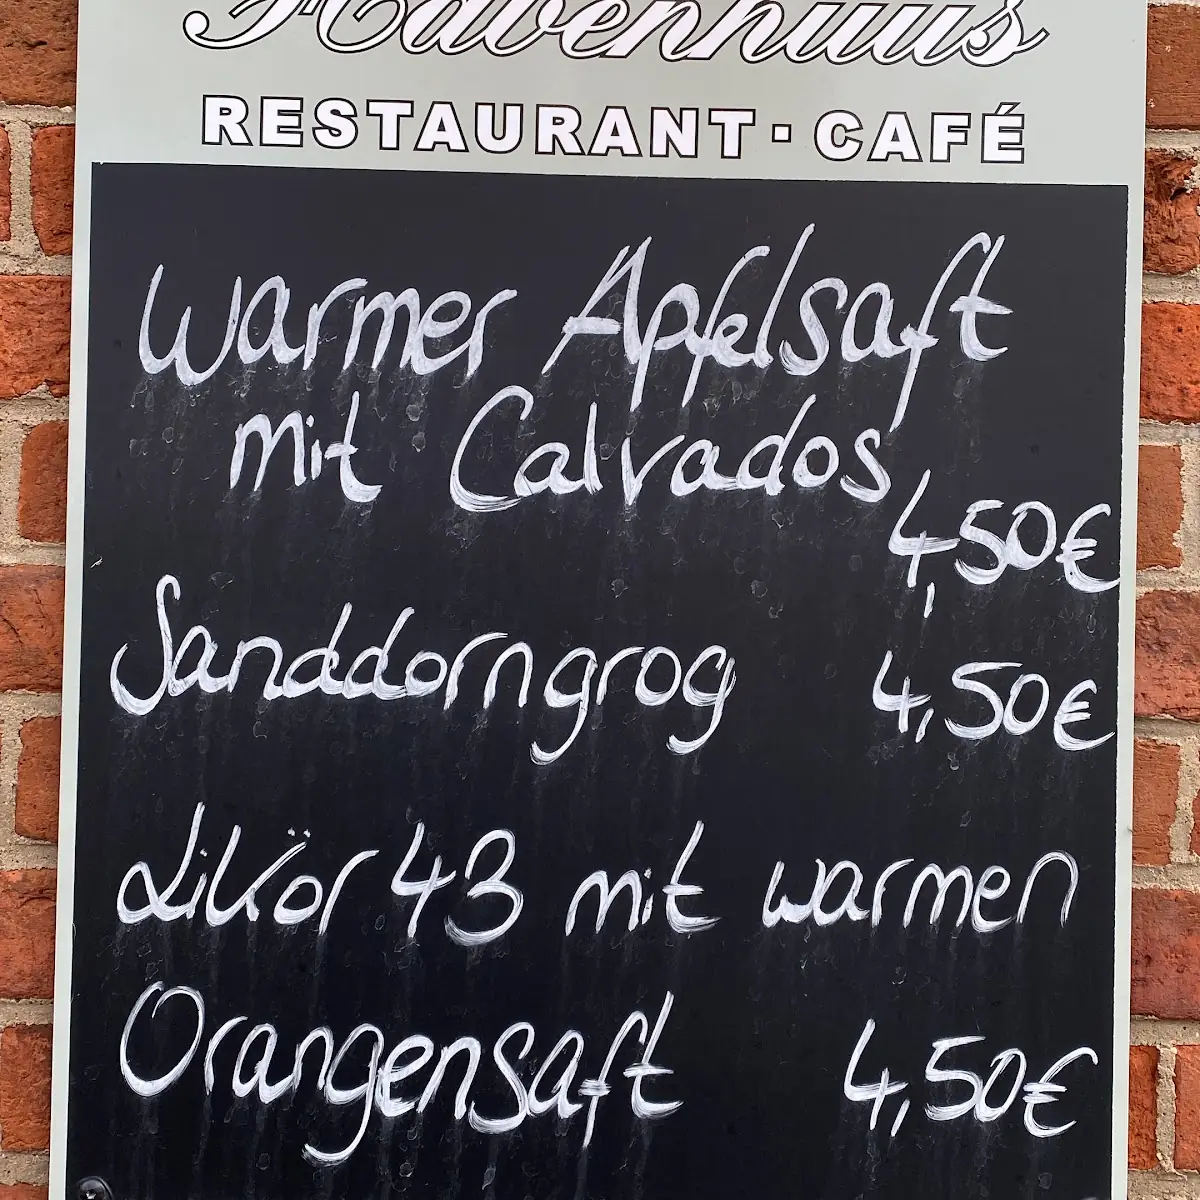 Havenhuus
RESTAURANT · CAFÉ
Warmer Apfelsaft
mit Calvados
4,50€
Sanddorngrog 4,50€
Likör 43 mit warmen
Orangensaft 4,50€